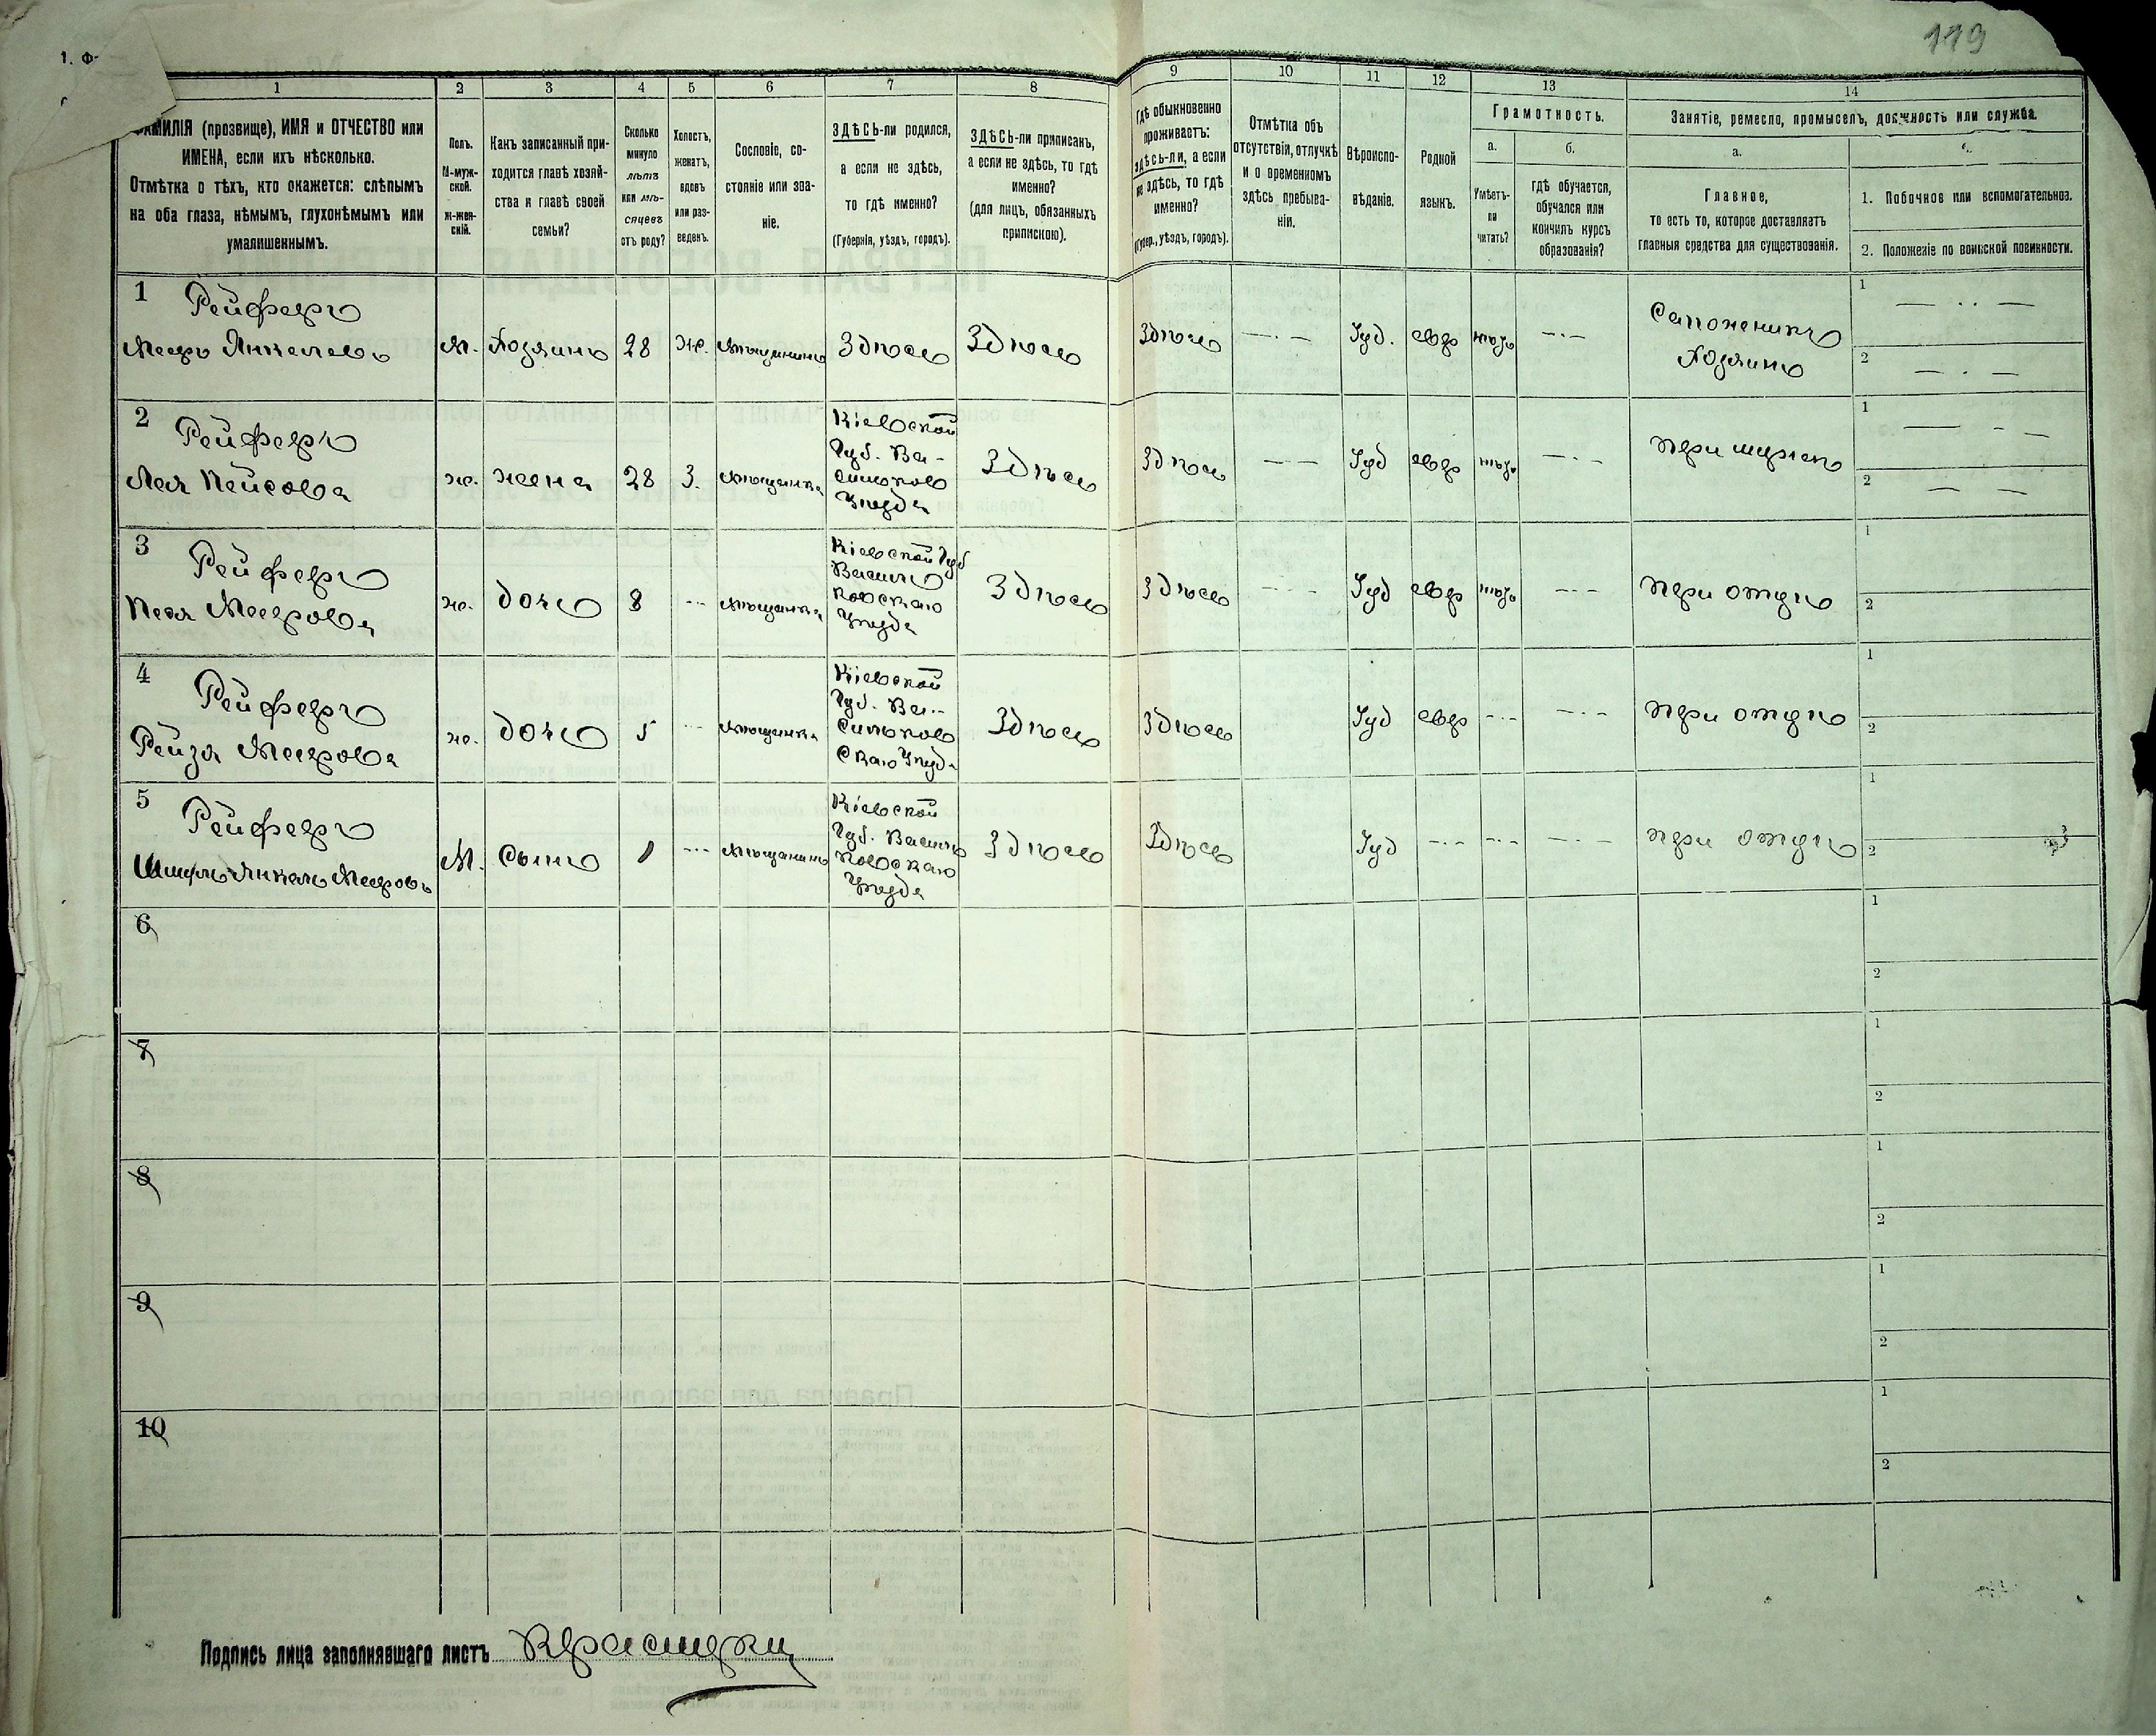 119
1 2 3 4 5 6 7 8 9 10 11 12 13 14
ФАМИЛІЯ (прозвище), ИМЯ и ОТЧЕСТВО или
ИМЕНА, если ихъ нѣсколько.
Отмѣтка о тѣхъ, кто окажется: слѣпымъ
на оба глаза, нѣмымъ, глухонѣмымъ или
умалишеннымъ.
Полъ.
М-муж-
ской.
ж-жен-
скій.
Какъ записанный при-
ходится главѣ хозяй-
ства и главѣ своей
семьи?
Сколько
минуло
лѣтъ
или мѣ-
сяцевъ
отъ роду?
Холостъ,
женатъ,
вдовъ
или раз-
веденъ.
Сословіе, со-
стояніе или зва-
ніе.
ЗДѢСЬ-ли родился,
а если не здѣсь,
то гдѣ именно?
(Губернія, уѣздъ, городъ).
ЗДѢСЬ-ли приписанъ,
а если не здѣсь, то гдѣ
именно?
(для лицъ, обязанныхъ
припискою).
Гдѣ обыкновенно
проживаетъ:
здѣсь-ли, а если
не здѣсь, то гдѣ
именно?
(Губер., уѣздъ, городъ).
Отмѣтка объ
отсутствіи, отлучкѣ
и о временномъ
здѣсь пребыва-
ніи.
Вѣроиспо-
вѣданіе.
Родной
языкъ.
Грамотность.
а.
Умѣетъ-
ли
читать?
б.
гдѣ обучается,
обучался или
кончилъ курсъ
образованія?
Занятіе, ремесло, промыселъ, должность или служба.
а.
Главное,
то есть то, которое доставляетъ
главныя средства для существованія.
1. Побочное или вспомогательное.
2. Положеніе по воинской повинности.
1 Рейферъ
Мееръ Янкелевъ
М.
Хозяинъ
28
Же.
Мѣщанинъ
Здѣсь
Здѣсь
Здѣсь
Іуд.
евр
нѣтъ
Сапожникъ
Хозяинъ
1
2
2 Рейферъ
Лея Пейсова
же.
жена
28
З.
Мѣщанка
Кіевской
Губ. Ва-
сильков
Уѣзда
Здѣсь
Здѣсь
Іуд
евр
нѣтъ
при мужѣ
1
2
3 Рейферъ
Песя Меерова
же.
дочь
8
Мѣщанка
Кіевской Губ
Василь
ковскаго
Уѣзда
Здѣсь
Здѣсь
Іуд
евр
нѣтъ
при отцѣ
1
2
4 Рейферъ
Рейзя Меерова
же.
дочь
5
Мѣщанка
Кіевской
Губ. Ва-
сильков
скаго Уѣзда
Здѣсь
Здѣсь
Іуд
евр
при отцѣ
1
2
5 Рейферъ
Шмуль Янкель Мееровъ
М.
Сынъ
1
Мѣщанинъ
Кіевской
Губ. Василь
ковскаго
Уѣзда
Здѣсь
Здѣсь
Іуд
при отцѣ
1
2
6
1
2
7
1
2
8
1
2
9
1
2
10
1
2
Подпись лица заполнявшаго листъ